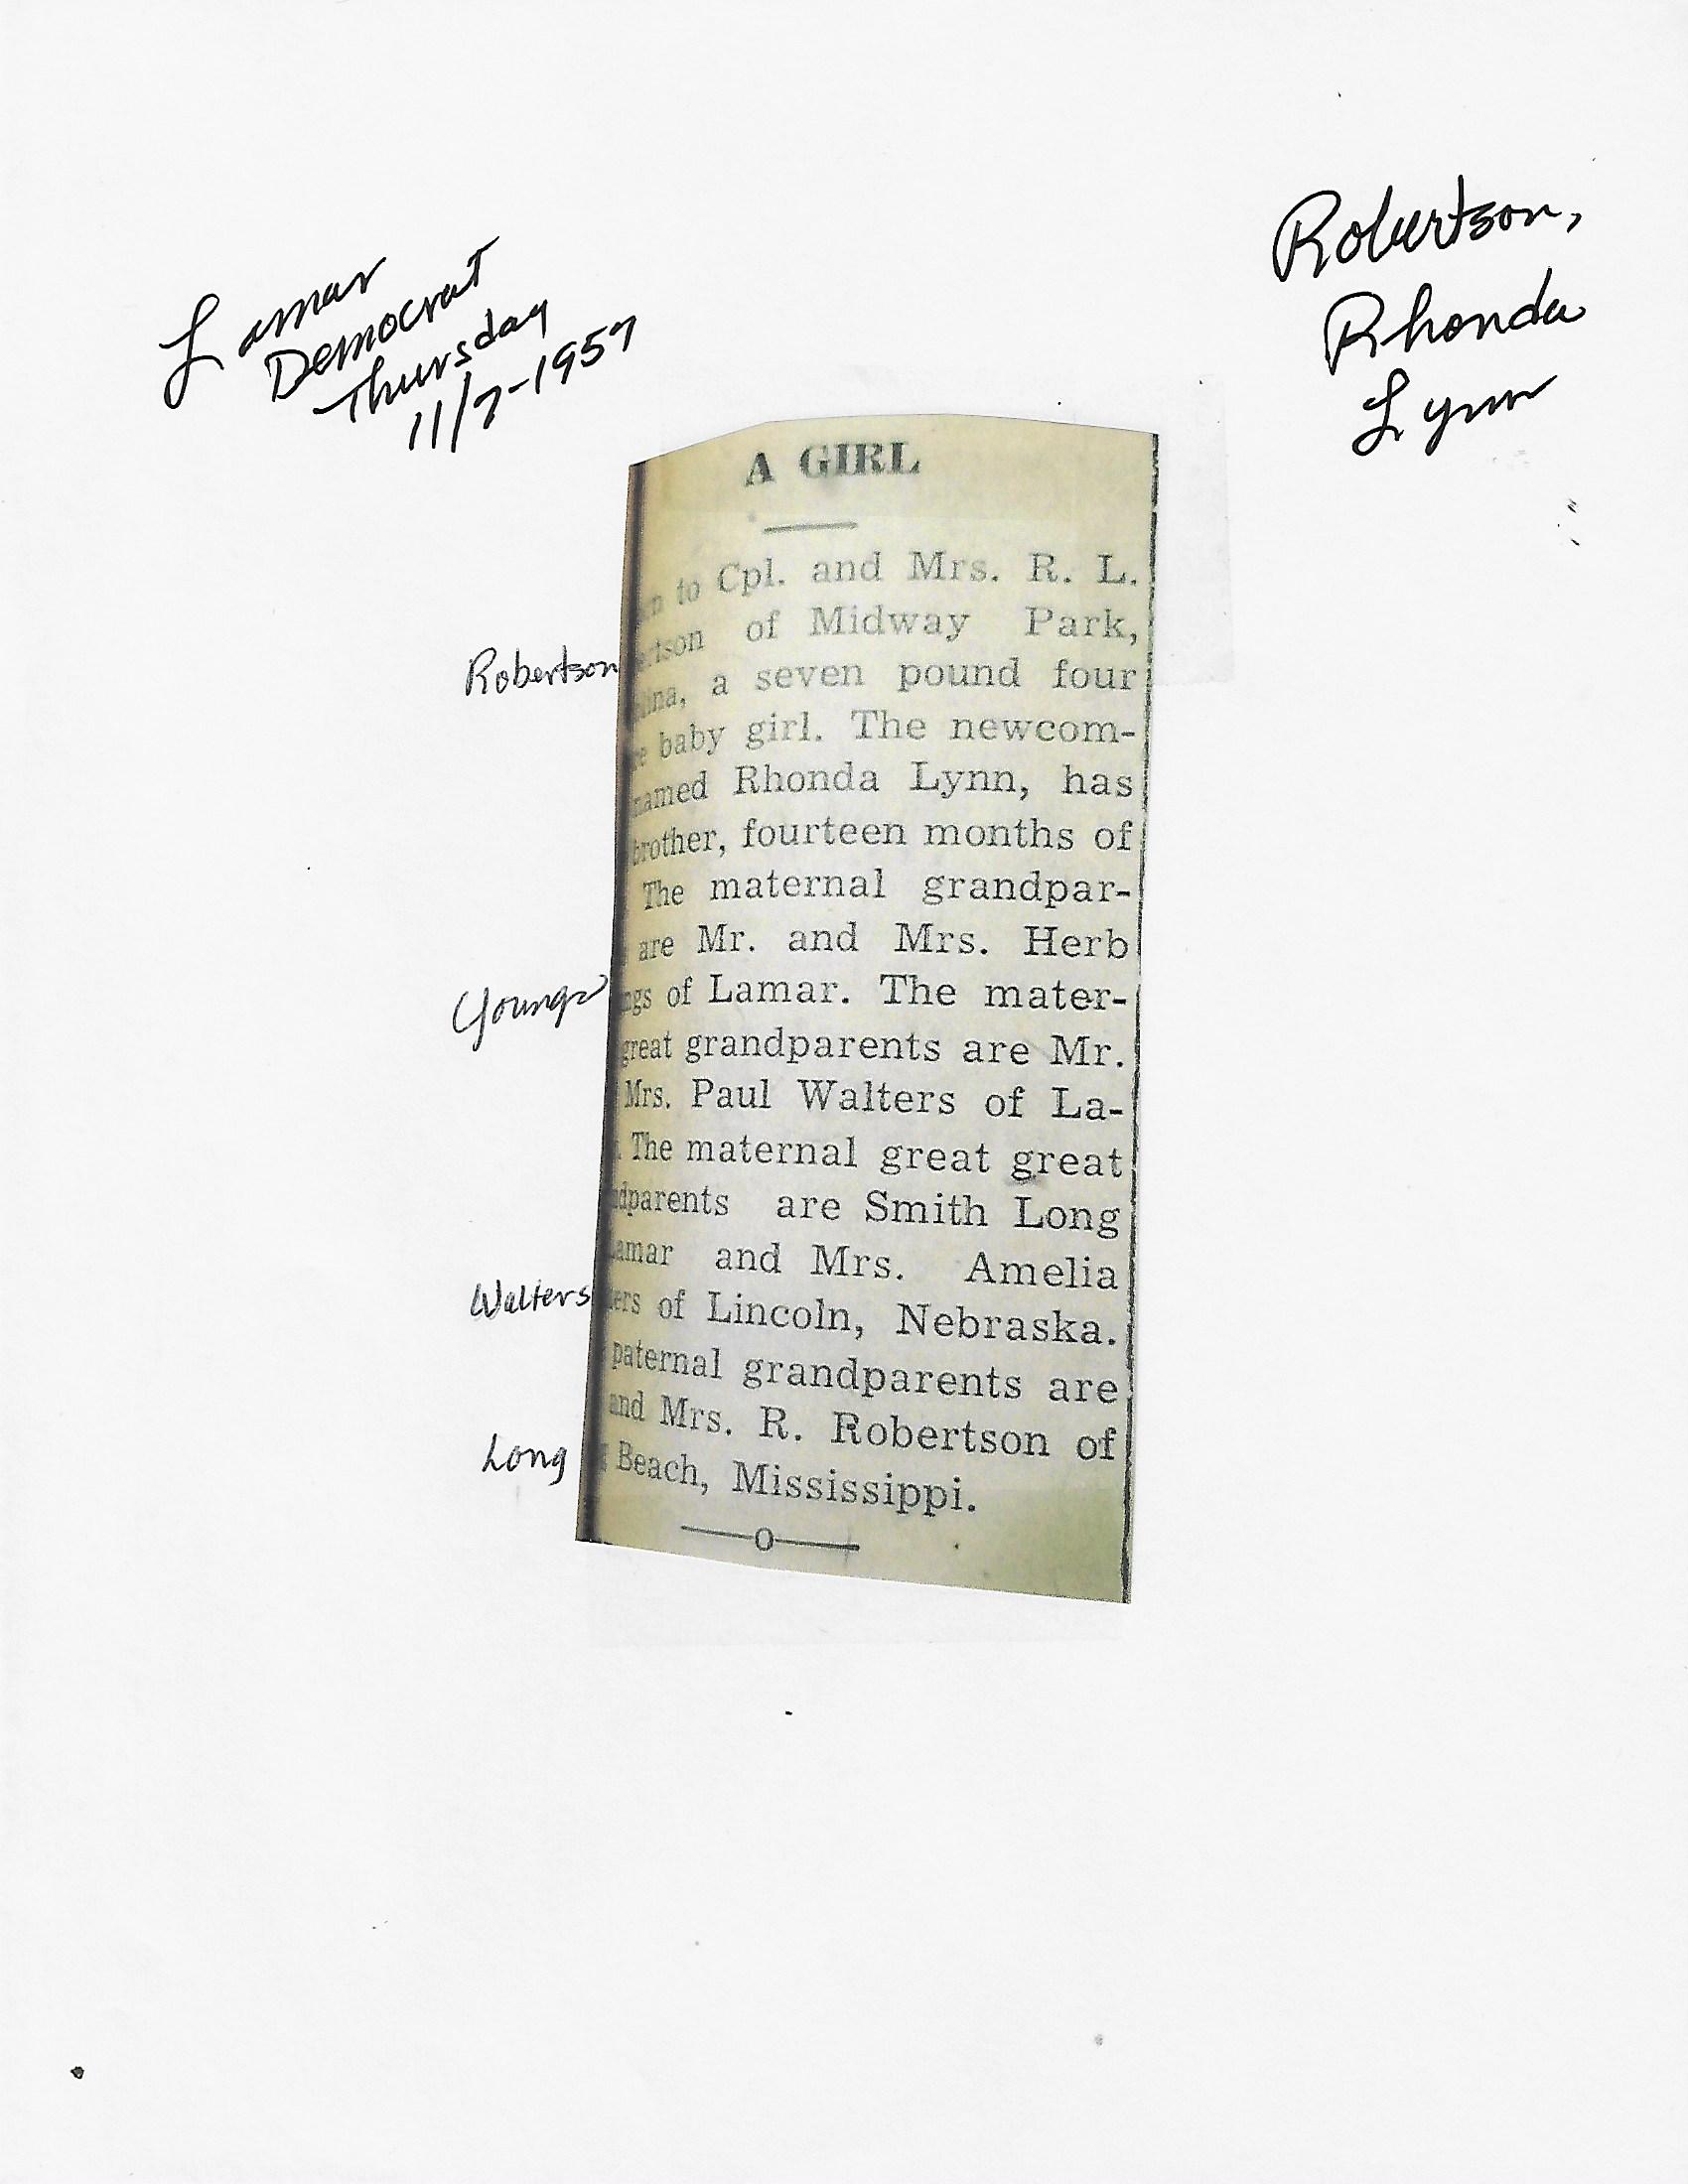 Lamar
Democrat
Thursday
11/7-1957
Robertson,
Rhonda
Lynn
A GIRL
to Cpl. and Mrs. R. L.
Robertson
ertson of Midway Park,
lina, a seven pound four
baby girl. The newcom-
named Rhonda Lynn, has
brother, fourteen months of
The maternal grandpar-
are Mr. and Mrs. Herb
Youngs
ngs of Lamar. The mater-
great grandparents are Mr.
Mrs. Paul Walters of La-
The maternal great great
ndparents are Smith Long
amar and Mrs. Amelia
Walters
ters of Lincoln, Nebraska.
paternal grandparents are
and Mrs. R. Robertson of
Long
Beach, Mississippi.